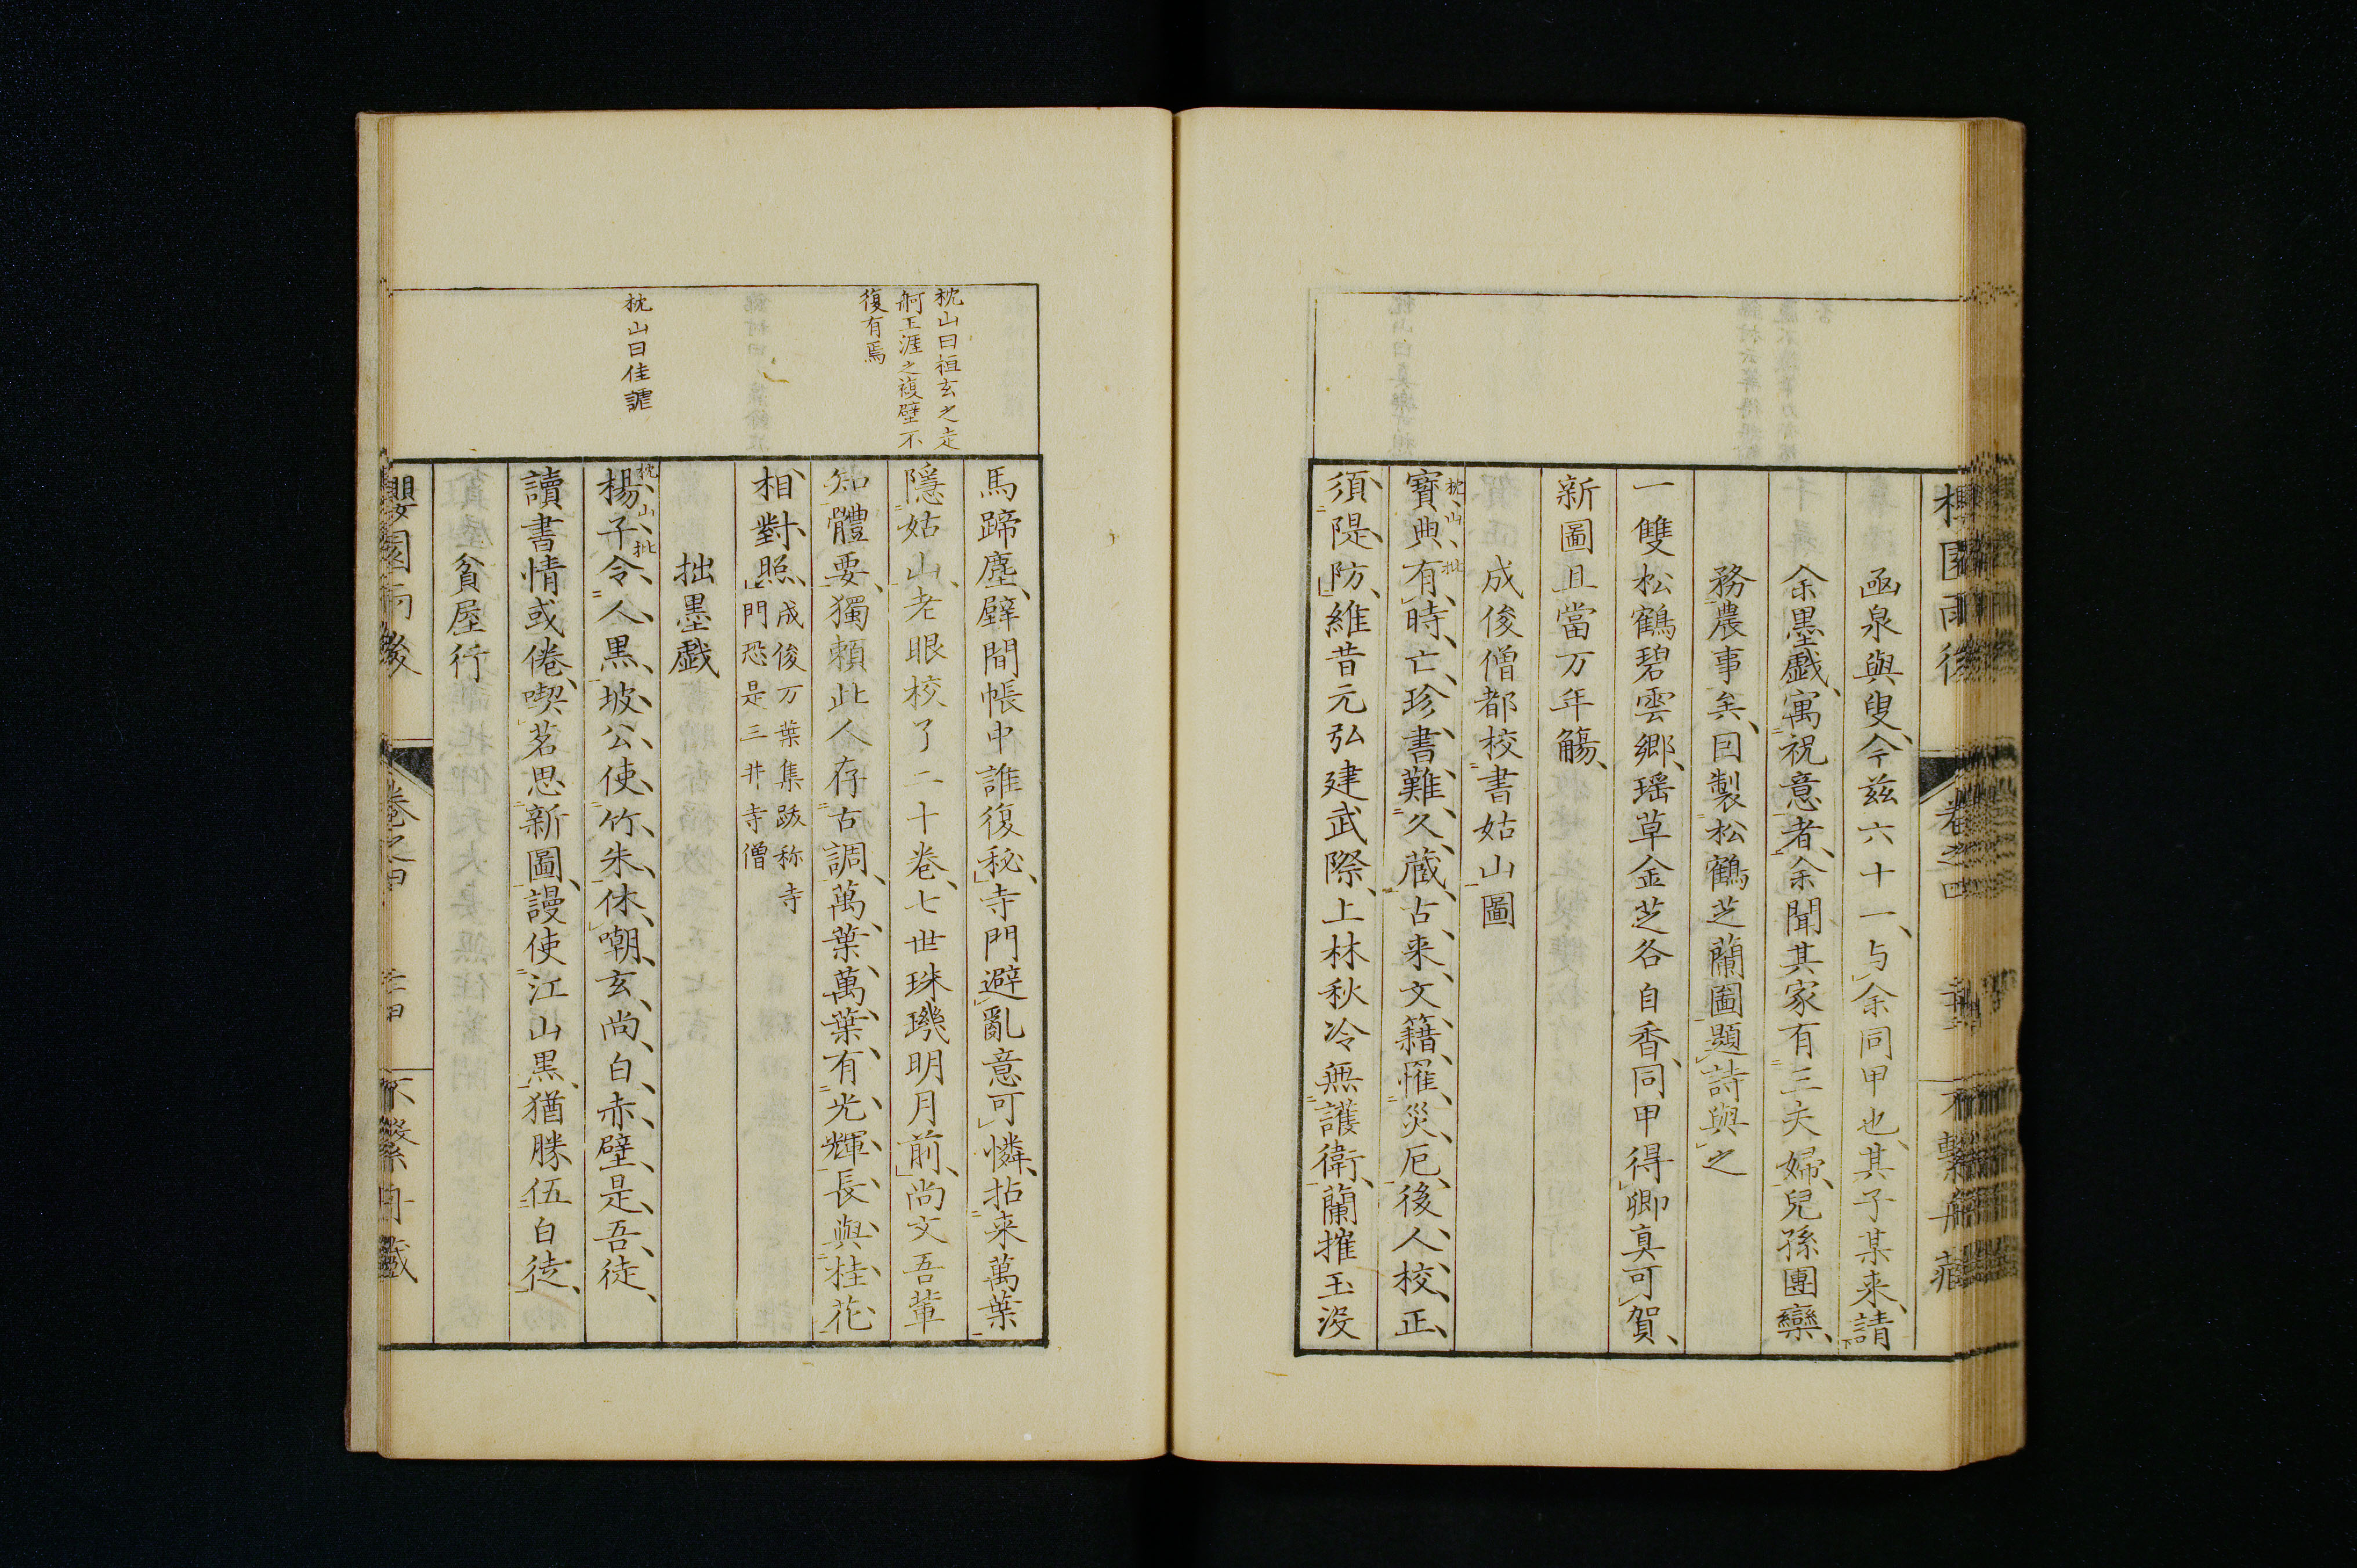 函泉與叟今茲六十一与余同甲也其子某来請
余墨戯寓祝意者余聞其家有三夫婦兒孫團欒
務農事矣因製松鶴芝蘭圖題詩與之
一雙松鶴碧雲郷瑶草金芝各自香同甲得卿真可賀
新圖且當万年觴
成俊僧都校書姑山圖
枕山批
寶典有時亡珍書難久蔵古来文籍罹災厄後人校正
須隄防維昔元弘建武際上林秋冷無護衛蘭摧玉没
馬蹄塵壁間帳中誰復秘寺門避亂意可憐拈来萬葉
隱姑山老眼校了二十卷七世珠璣明月前尚文吾輩
知體要獨頼此人存古調萬葉萬葉有光輝長與桂花
相對照
成俊万葉集跋称寺
門恐是三井寺僧
拙墨戯
枕山批
楊子令人黒坡公使竹朱休嘲玄尚白赤壁是吾徒
讀書情或倦喫茗思新圖謾使江山黒猶勝伍白徒
貧屋行
枕山曰桓玄之走
舸王涯之複壁不
復有焉
枕山曰佳謔